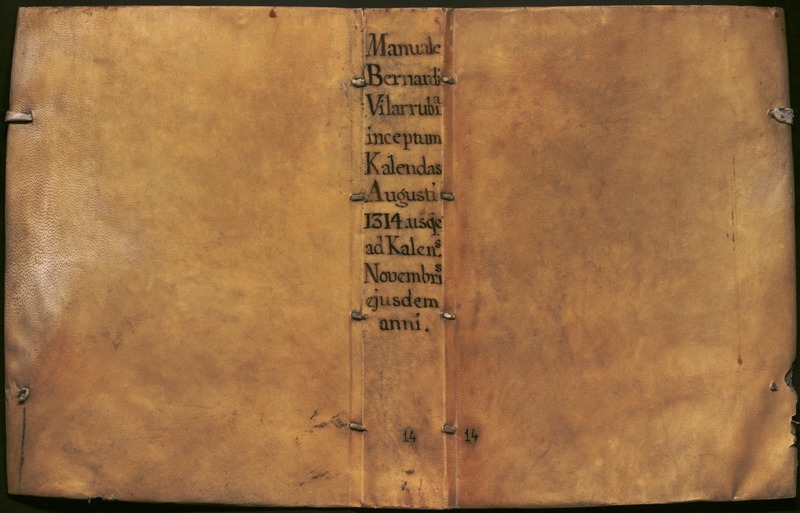 Manuale
Bernardi
Vilarrubia
inceptum
Kalendas
Augusti
1314 usqe
ad Kalens
Novembris
ejusdem
anni.
14 14